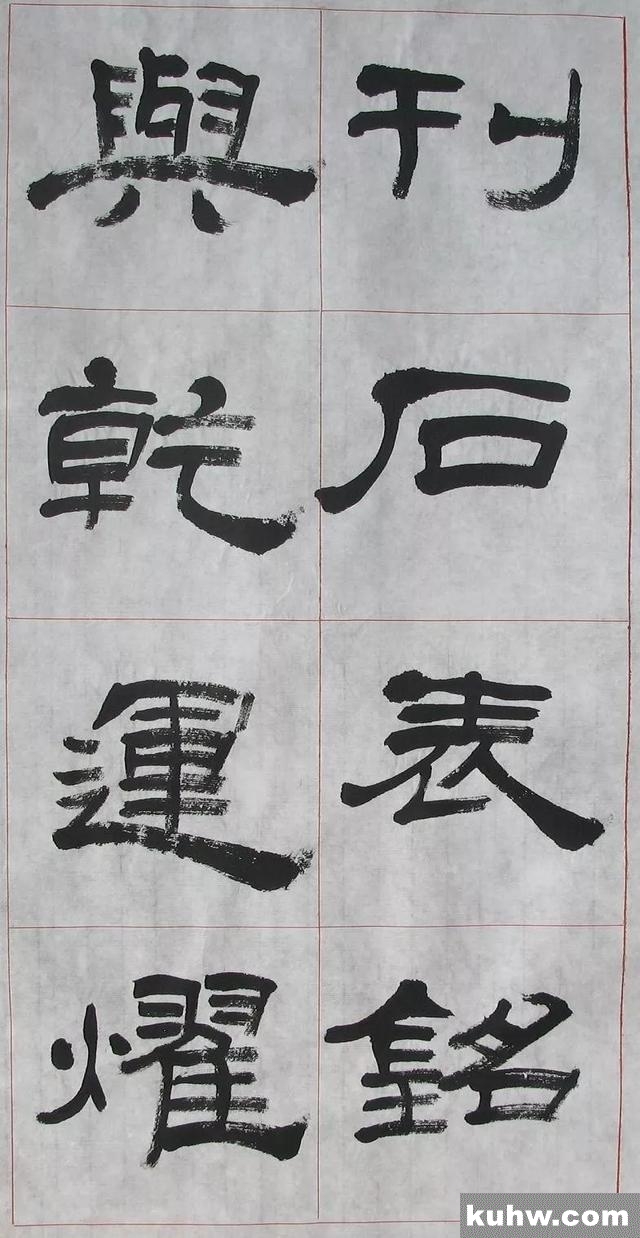 刊石表銘
與乾運燿
kuhw.com